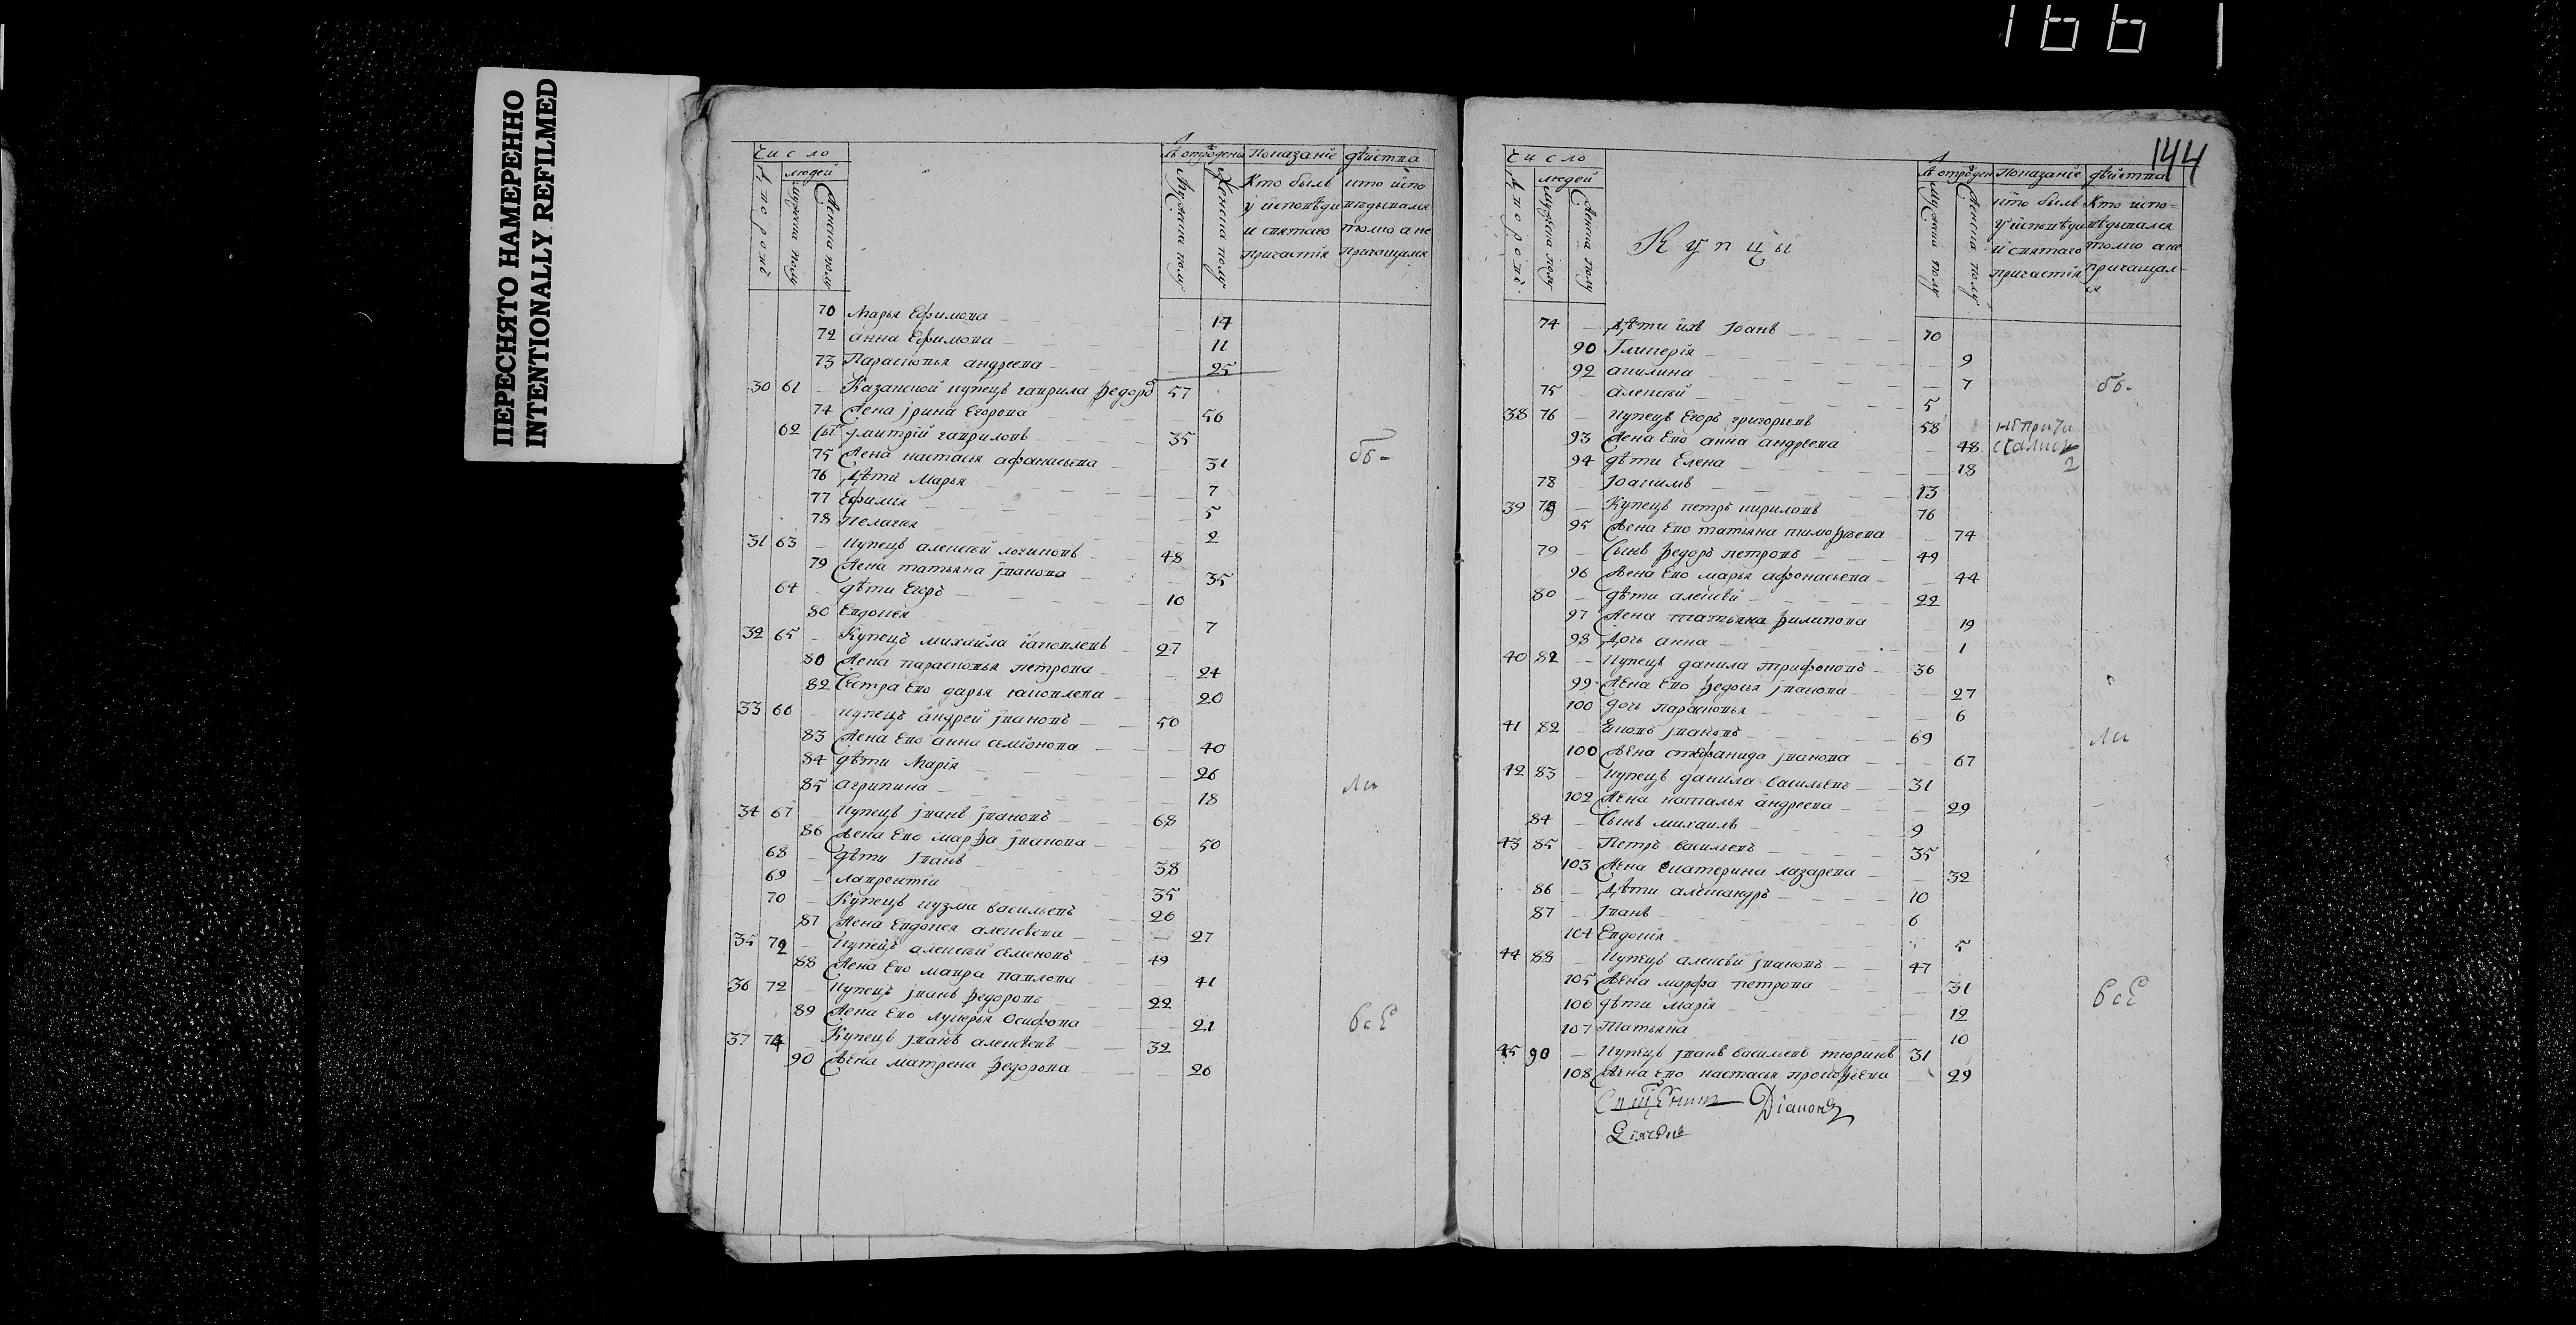 1661
ПЕРЕСНЯТО НАМЕРЕННО
INTENTIONALLY REFILMED
Число
людей
Дворовъ
Мужеска полу
Женска полу
Лѣ отрожени
Мужеска полу
Женска полу
Показаніе дѣйства
Кто былъ
у исповѣди
и святаго
причастія
кто испо
вѣдывался
токмо а не
причащался
70 Марья Ефимова 14
72 анна Ефимова 11
73 Парасковья андреева 25
30 61 Казанской купецъ гаврила Ѳедоръ 57
74 Жена Ірина Егорова 56
62 Сы дмитрій гавриловъ 35
75 Жена настасья афанасьева 31
бы
76 Дѣти Марья 7
77 Ефимія 5
78 Пелагея 2
31 63 купецъ алексѣй логиновъ 48
79 Жена татьяна Іванова 35
64 дѣти Егоръ 10
80 Евдокея 7
32 65 Купецъ михайла яковлевъ 27
80 Жена парасковья петрова 24
82 Сестра Ево дарья яковлева 20
33 66 купецъ андрей Івановъ 50
83 Жена Ево анна семіонова 40
84 дѣти Марія 26
85 агрипина 18
ли
34 67 купецъ Іванъ Івановъ 68
86 Жена Ево марѳа Іванова 50
68 дѣти Іванъ 38
69 лаврентіи 35
70 Купецъ кузма васильевъ 26
87 Жена Евдокея алексѣева 27
35 72 купецъ алексѣй семеновъ 49
88 Жена Ево мавра павлова 41
36 72 купецъ Іванъ Ѳедоровъ 22
89 Жена Ево лукерья Осифова 21
всѣ
37 74 Купецъ Іванъ алексѣевъ 32
90 Жена матрена Ѳедорова 26
144
Число
людей
Дворовъ
Мужеска полу
Женска полу
Купцы
Лѣ отрожен
Мужеска полу
Женска полу
Показаніе дѣйства
кто былъ
у исповѣди
и святаго
причастія
Кто испо=
вѣдывался
токмо а не
причащал-
ся
74 Дѣти ихъ Іоанъ 10
90 Гликерія 9
92 акилина 7
бы
75 алексѣй 5
38 76 купецъ Егоръ григорьевъ 58
93 Жена Ево анна андреева 48
не прича
стались
2
94 дѣти Елена 18
78 Іоакимъ 13
39 79 Купецъ петръ кириловъ 76
95 Жена Ево татьяна тимофѣева 74
79 Сынъ Ѳедоръ петровъ 49
96 Жена Ево марья афонасьева 44
80 дѣти алексѣй 22
97 Жена татьяна филипова 19
98 Дочь анна 1
40 82 купецъ данила трифоновъ 36
99 Жена Ево Ѳедосья Іванова 27
100 дочь парасковья 6
41 82 Івановъ 69
ли
100 Жена стефанида Іванова 67
42 83 купецъ данила васильевъ 31
102 Жена наталья андреева 29
84 Сынъ михаилъ 9
43 85 Петръ васильевъ 35
103 Жена Екатерина лазарева 32
86 Дѣти александръ 10
87 Іванъ 6
104 Евдокія 5
44 88 купецъ алексѣй Івановъ 47
105 Жена марфа петрова 31
всѣ
106 дѣти марія 12
107 Татьяна 10
45 90 купецъ Іванъ васильевъ тюринъ 31
108 Жена Ево настасья прокофьева 29